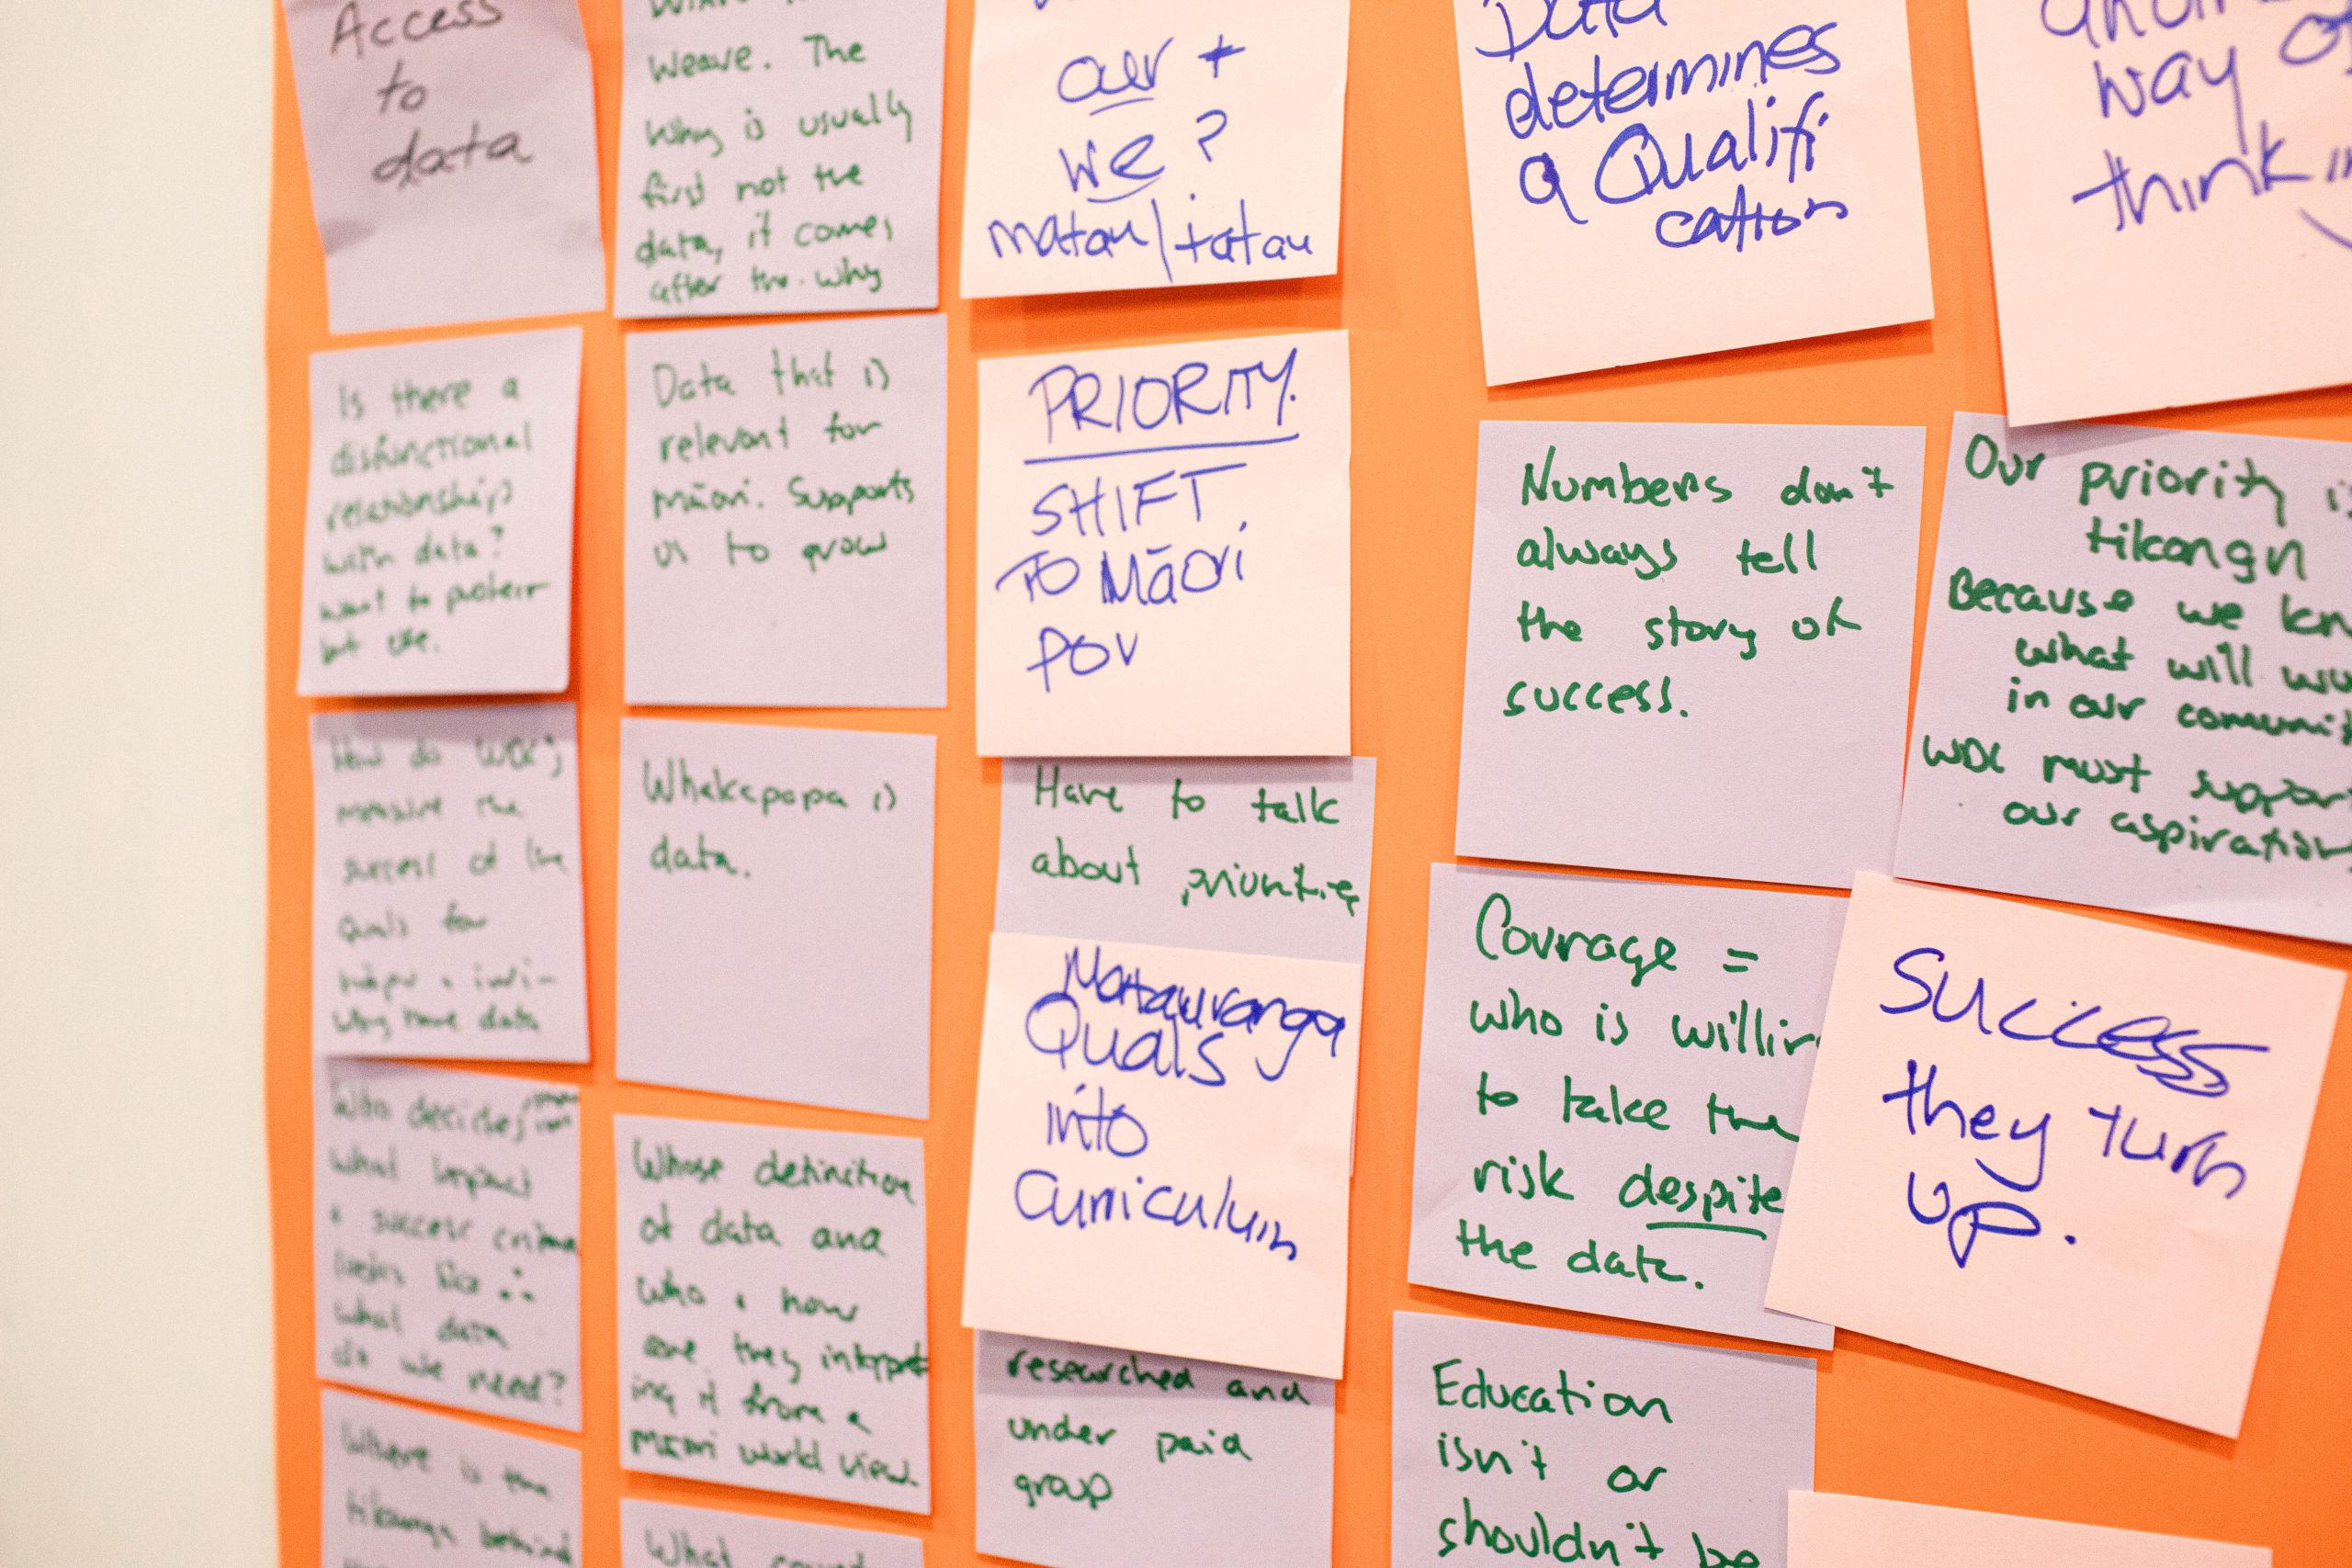 Access
to
data
weave. The
Why is usually
first not the
data, it comes
after the why
our +
we?
matau/tatau
Data
determines
a Qualifi
cation
way of
think
Is there a
disfunctional
relationship
with data?
want to protect
but use.
Data that is
relevant for
Māori. Supports
us to grow
PRIORITY.
SHIFT
TO MāORi
POV
Numbers don't
always tell
the story of
success.
Our priority is
tikanga
Because we
what will
in our
WDC must
our
How do WDC's
measure the
success of the
quals for
why have data
Whakapapa is
data.
Have to talk
about priorities
Matauranga
Quals
into
Curriculum
Courage =
who is
to take the
risk despite
the data.
Success
they turn
up.
Who decides
what impact
+ success criteria
looks like ∴
what data
do we need?
Whose definition
of data and
who + how
are they interpret
ing it from a
Māori world view.
researched and
under paid
group
Education
isn't or
shouldn't be
Where is the
tikanga behind
What